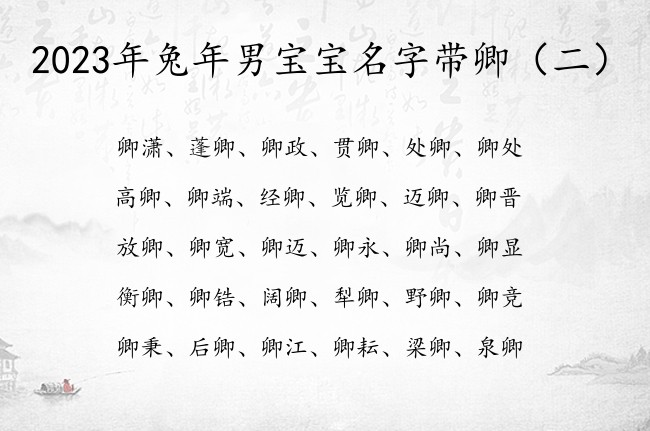 2023年兔年男宝宝名字带卿（二）
卿潇、蓬卿、卿政、贯卿、处卿、卿处
高卿、卿端、经卿、览卿、迈卿、卿晋
放卿、卿宽、卿迈、卿永、卿尚、卿显
衡卿、卿锆、阔卿、犁卿、野卿、卿竞
卿秉、后卿、卿江、卿耘、梁卿、泉卿